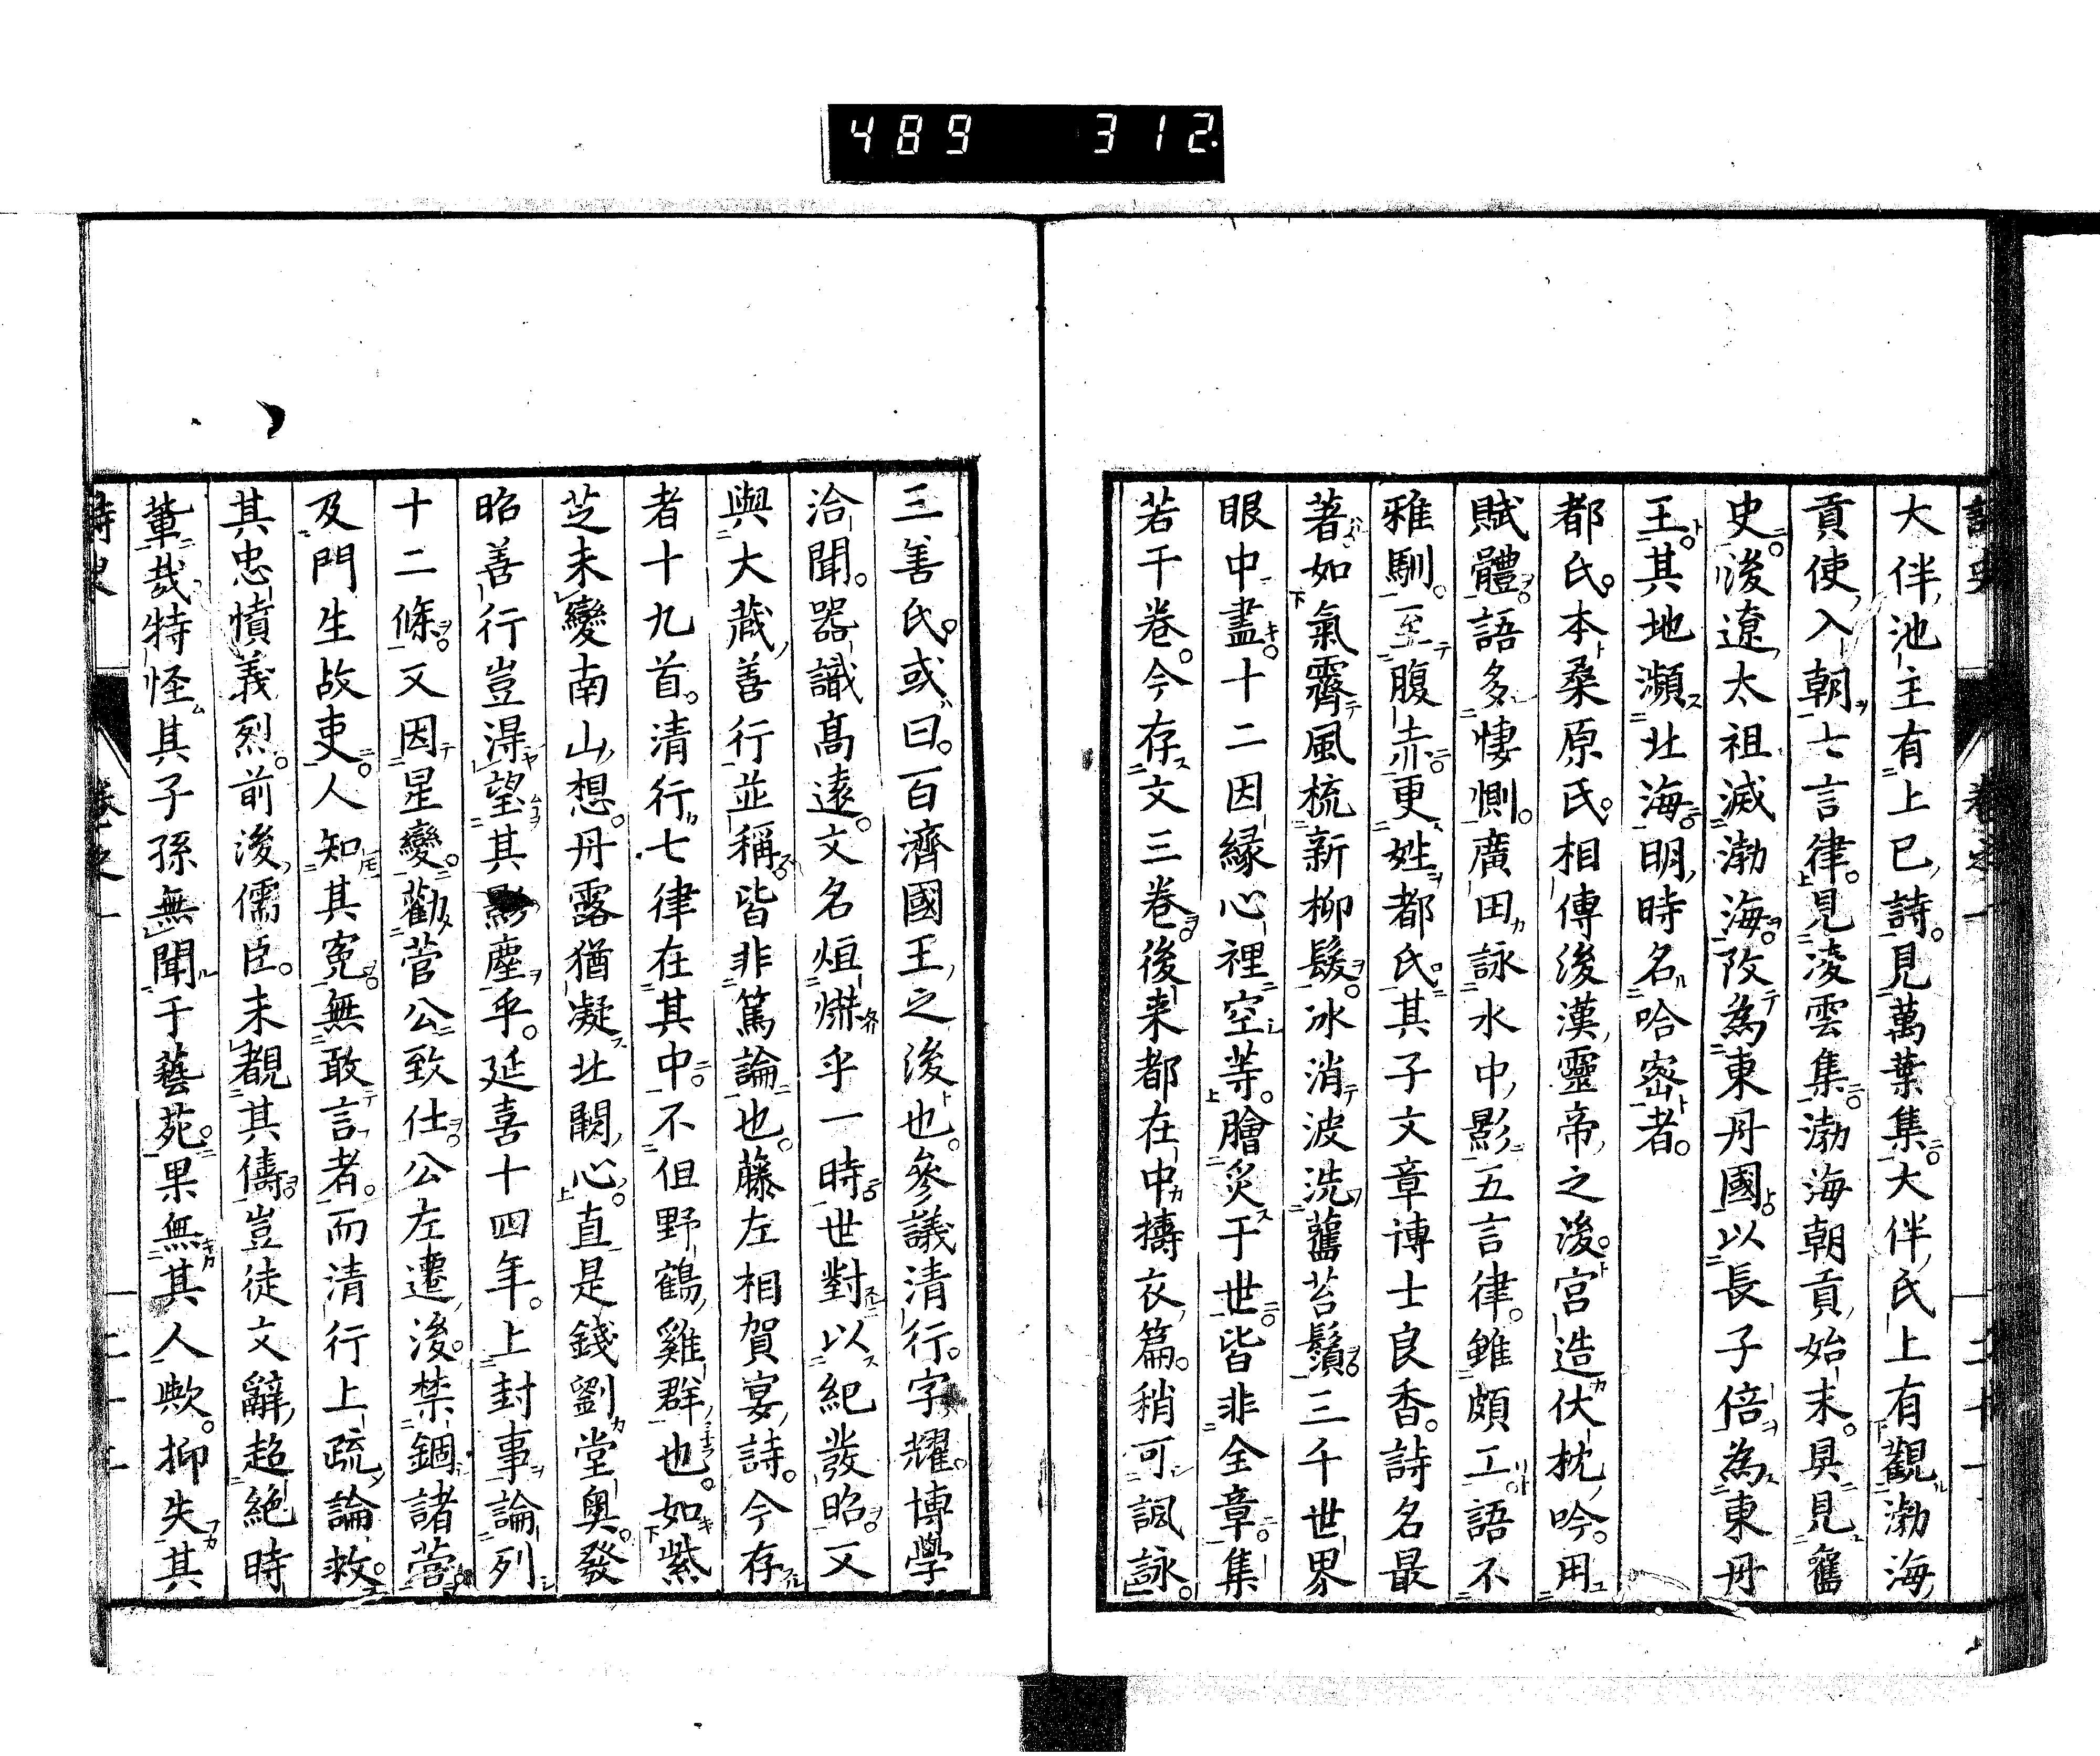 489 312
大伴池主有上巳詩見萬葉集大伴氏上有觀渤海
貢使入朝七言律見凌雲集渤海朝貢始末具見舊
史後遼太祖滅渤海改為東丹國以長子倍為東丹
王其地瀕北海明時名哈密者
都氏本桑原氏相傳後漢靈帝之後宮造伏枕吟用
賦體語多悽惻廣田詠水中影五言律雖頗工語不
雅馴至腹赤更姓都氏其子文章博士良香詩名最
著如氣霽風梳新柳髮冰消波洗舊苔鬚三千世界
眼中盡十二因緣心裡空等膾炙于世皆非全章集
若干卷今存文三卷後来都在中擣衣篇稍可諷詠
三善氏或曰百濟國王之後也參議清行字耀博學
洽聞器識高遠文名烜爀乎一時世對以紀發昭又
與大藏善行並稱皆非篤論也藤左相賀宴詩今存
者十九首清行七律在其中不但野鶴雞群也如紫
芝未變南山想丹露猶凝北闕心直是錢劉堂奧發
昭善行豈得望其影塵乎延喜十四年上封事論列
十二條又因星變勸菅公致仕公左遷後禁錮諸菅
及門生故吏人知其冤無敢言者而清行上疏論救
其忠憤義烈前後儒臣未覩其儔豈徒文辭超絕時
輩哉特怪其子孫無聞于藝苑果無其人歟抑失其
詩史 卷之一